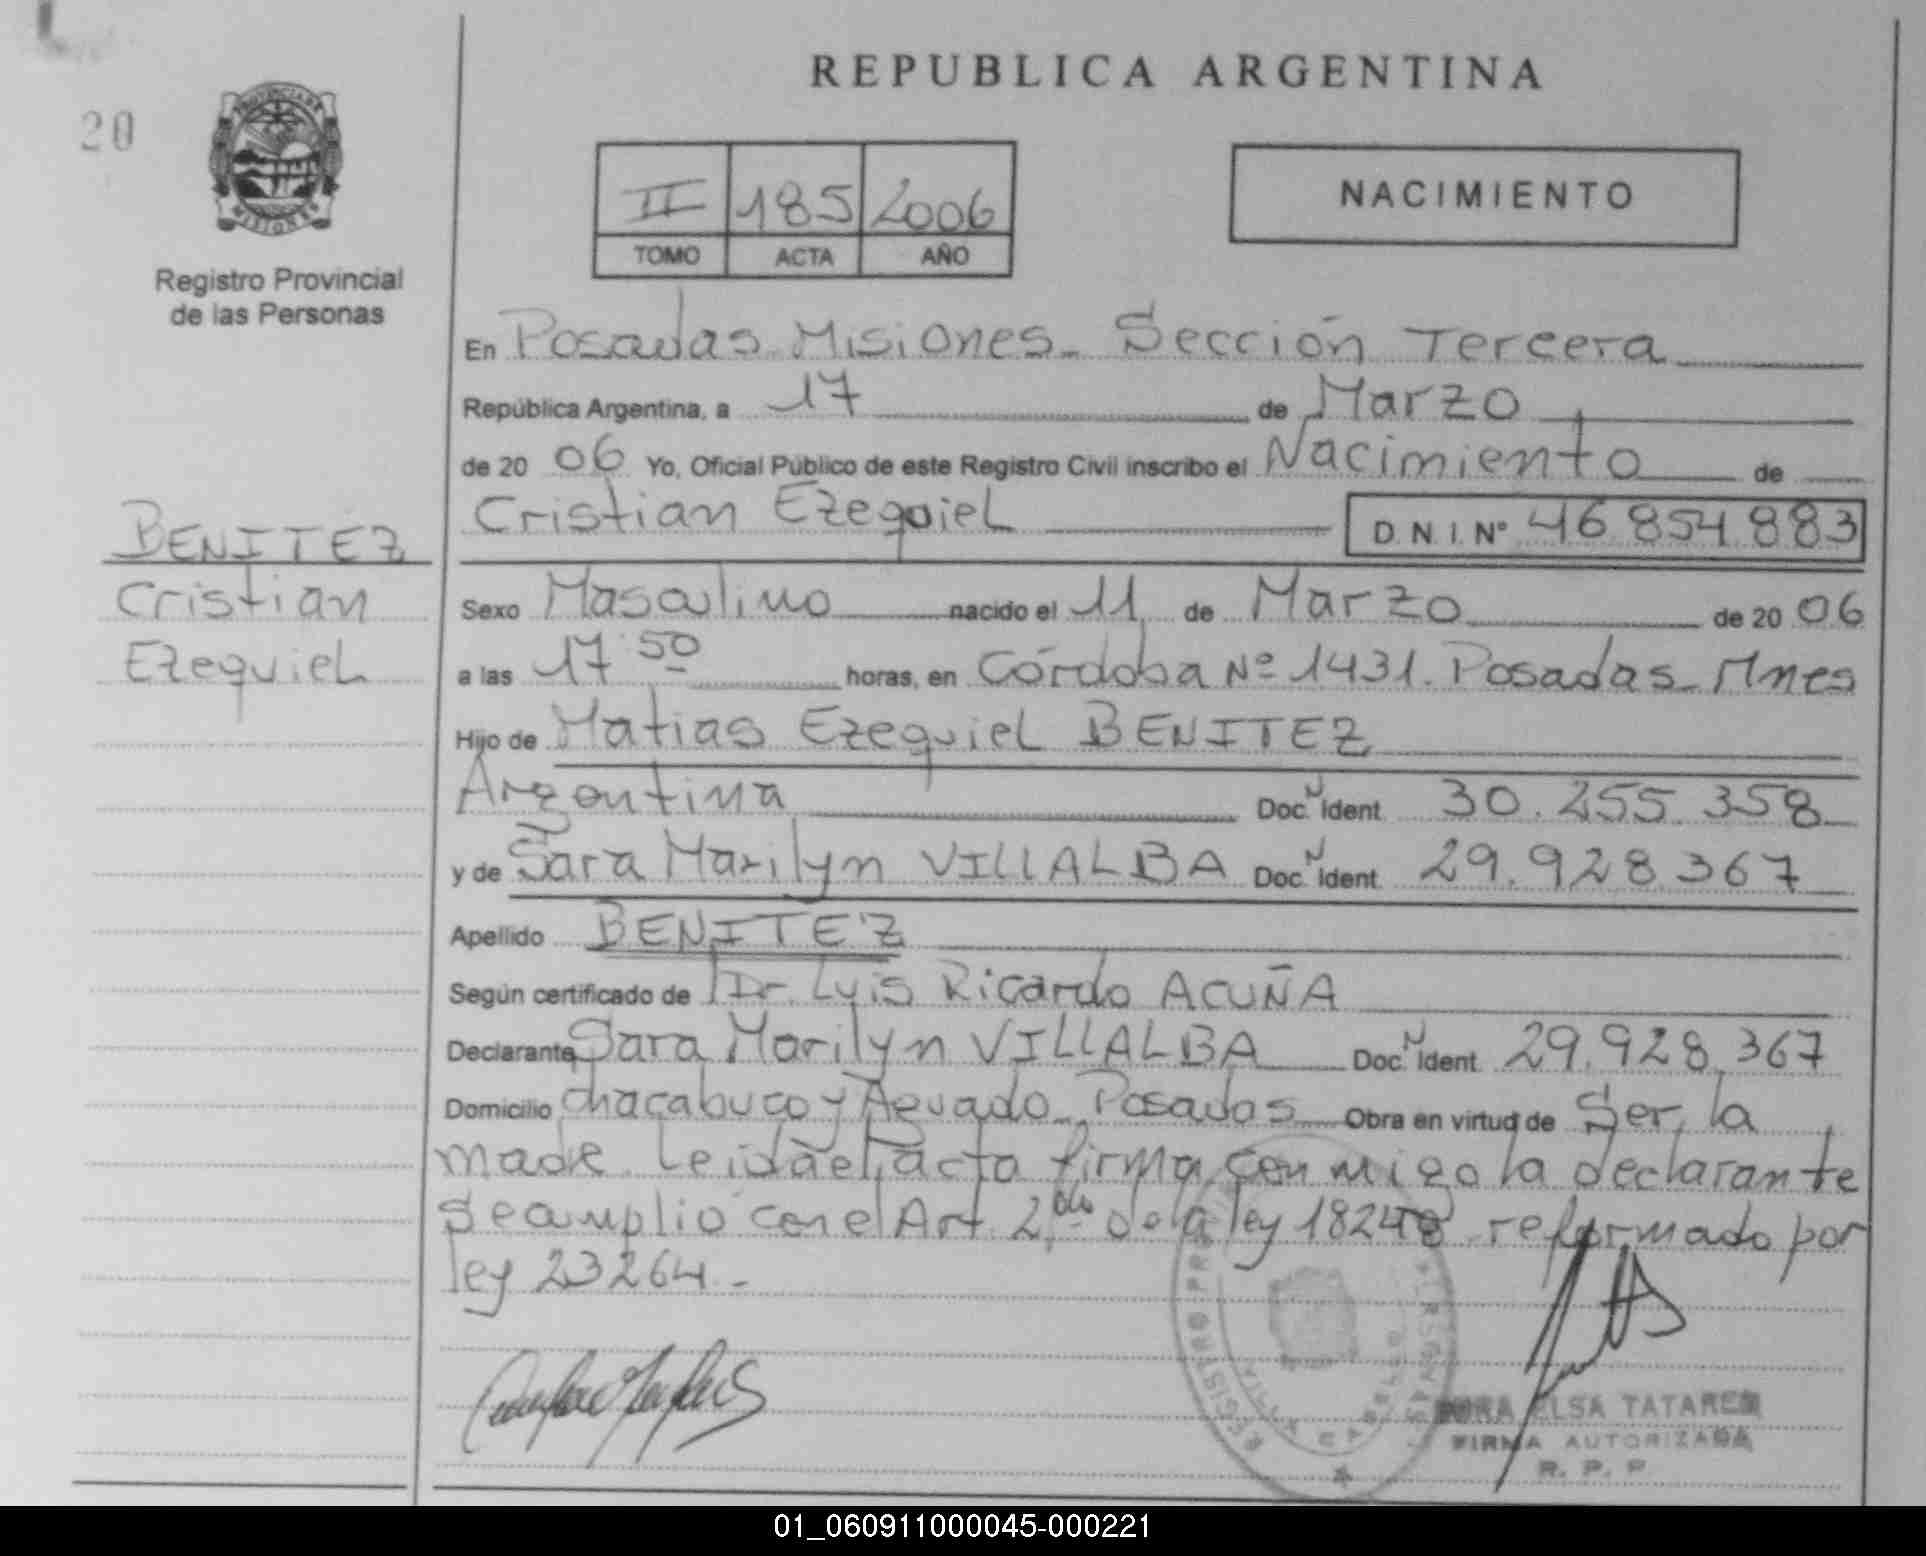 REPUBLICA ARGENTINA
20
PROVINCIA DE
MISIONES
Registro Provincial
de las Personas
II 185 2006
TOMO ACTA AÑO
NACIMIENTO
En Posadas Misiones_ Sección Tercera
República Argentina, a 17 de Marzo
de 20 06 Yo, Oficial Público de este Registro Civil inscribo el Nacimiento de
Cristian Ezequiel D.N.I.Nº 46.854.883
BENITEZ
Cristian
Ezequiel
Sexo Masculino nacido el 11 de Marzo de 20 06
a las 17 50 horas, en Córdoba Nº 1431. Posadas_ Mnes
Hijo de Matias Ezequiel BENITEZ
Argentina Doc. N Ident. 30.255.358
y de Sara Marilyn VILLALBA Doc. N Ident. 29.928.367
Apellido BENITEZ
Según certificado de Dr. Luis Ricardo ACUÑA
Declarante Sara Marilyn VILLALBA Doc. N Ident. 29.928.367
Domicilio Chacabuco y Aguado_ Posadas Obra en virtud de Ser la
madre. Leida el acta firma con migo la declarante
Se amplió con el Art. 2do de la ley 18248 reformado por
ley 23264.-
REGISTRO
VILLA CABELLO
ELSA TATAREN
FIRMA AUTORIZADA
R. P. P.
01_060911000045-000221